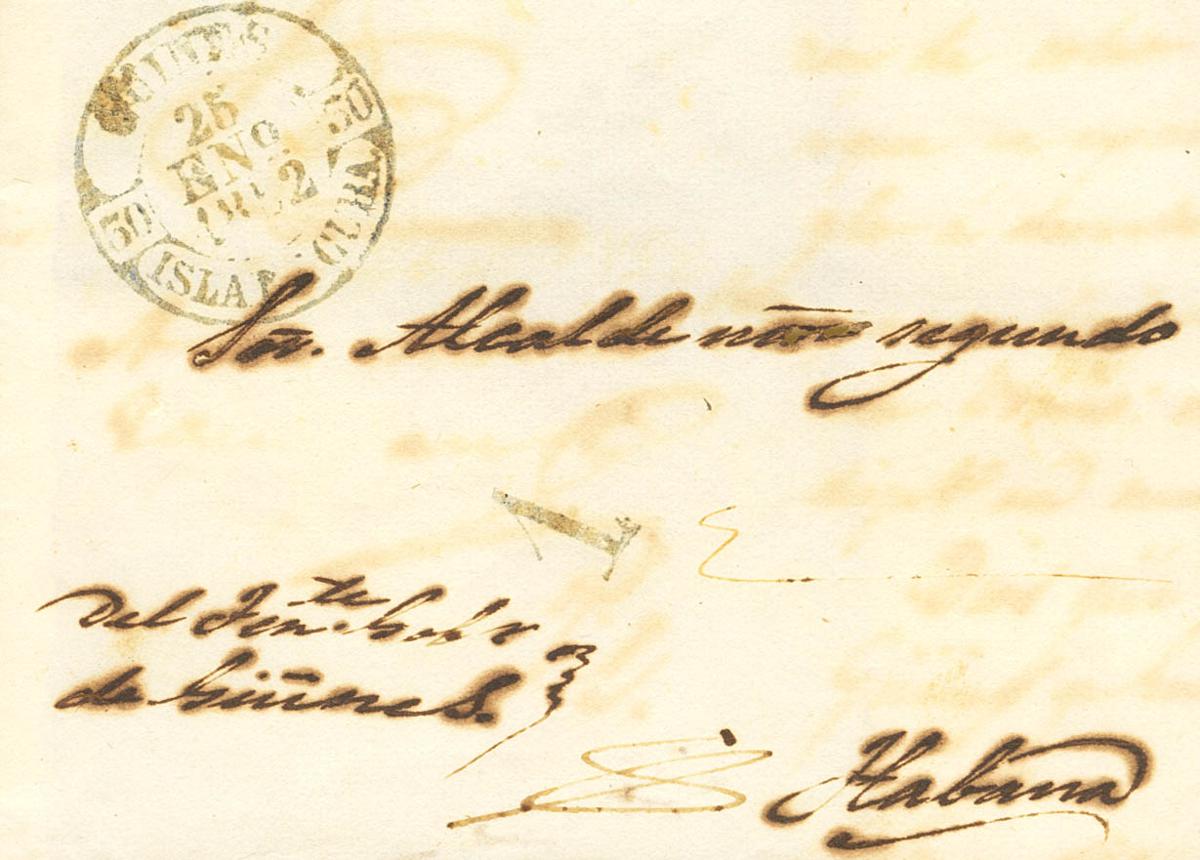 GUINES
25
ENO
30
30
ISLA CUBA
Sor. Alcalde segundo
1
Del Tente. Gobor
de Güines.
Habana